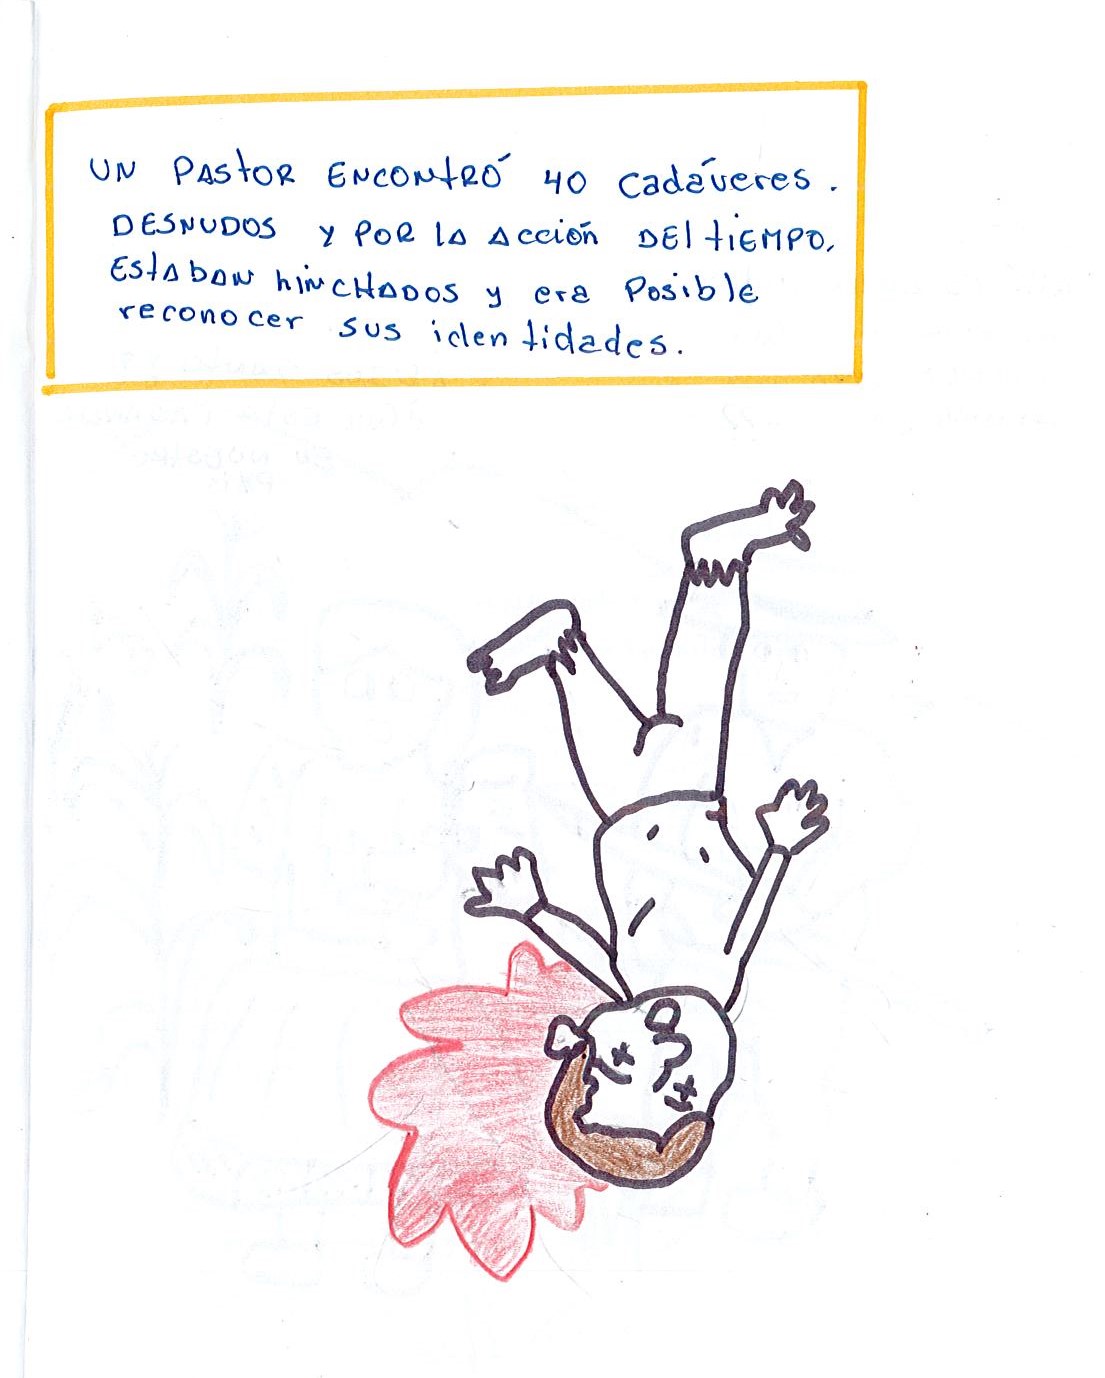 UN PASTOR ENCONTRÓ 40 cadáveres.
DESNUDOS y POR LA ACCIÓN DEL TIEMPO,
ESTABAN hINCHADOS y era Posible
reconocer sus identidades.